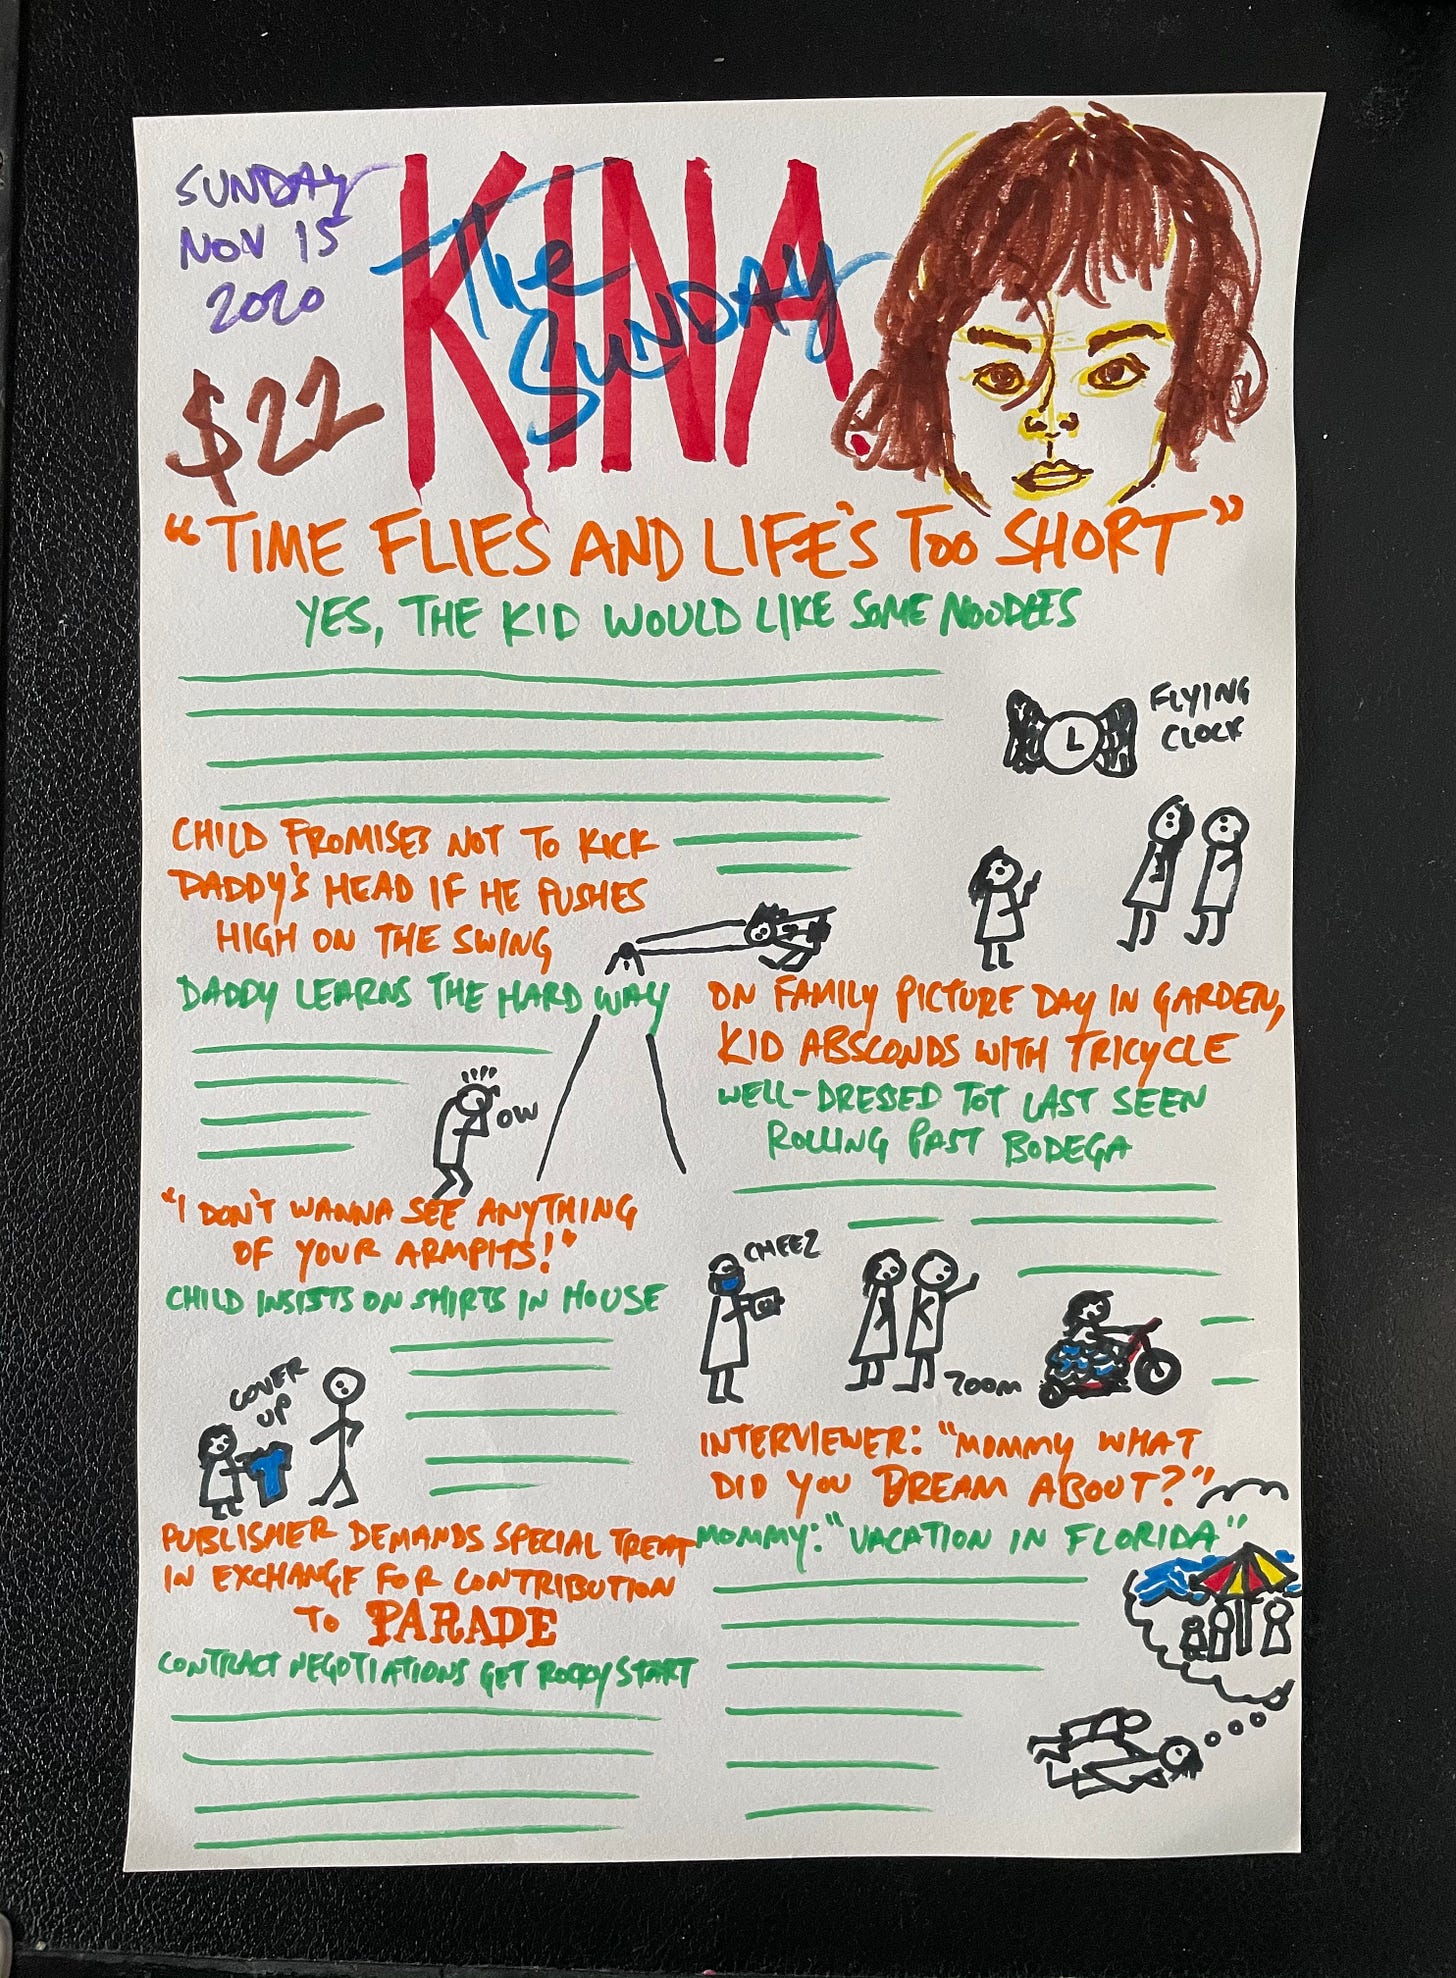 SUNDAY
NOV 15
2020
$22
KINA
The
SUNDAY
"TIME FLIES AND LIFE'S TOO SHORT"
YES, THE KID WOULD LIKE SOME NOODLES
FLYING
CLOCK
CHILD PROMISES NOT TO KICK
DADDY'S HEAD IF HE PUSHES
HIGH ON THE SWING
DADDY LEARNS THE HARD WAY
OW
ON FAMILY PICTURE DAY IN GARDEN,
KID ABSCONDS WITH TRICYCLE
WELL-DRESSED TOT LAST SEEN
ROLLING PAST BODEGA
CHEEZ
ZOOM
"I DON'T WANNA SEE ANYTHING
OF YOUR ARMPITS!"
CHILD INSISTS ON SHIRTS IN HOUSE
COVER
UP
INTERVIEWER: "MOMMY WHAT
DID YOU DREAM ABOUT?"
MOMMY: "VACATION IN FLORIDA"
PUBLISHER DEMANDS SPECIAL TREAT
IN EXCHANGE FOR CONTRIBUTION
TO PARADE
CONTRACT NEGOTIATIONS GET ROCKY START